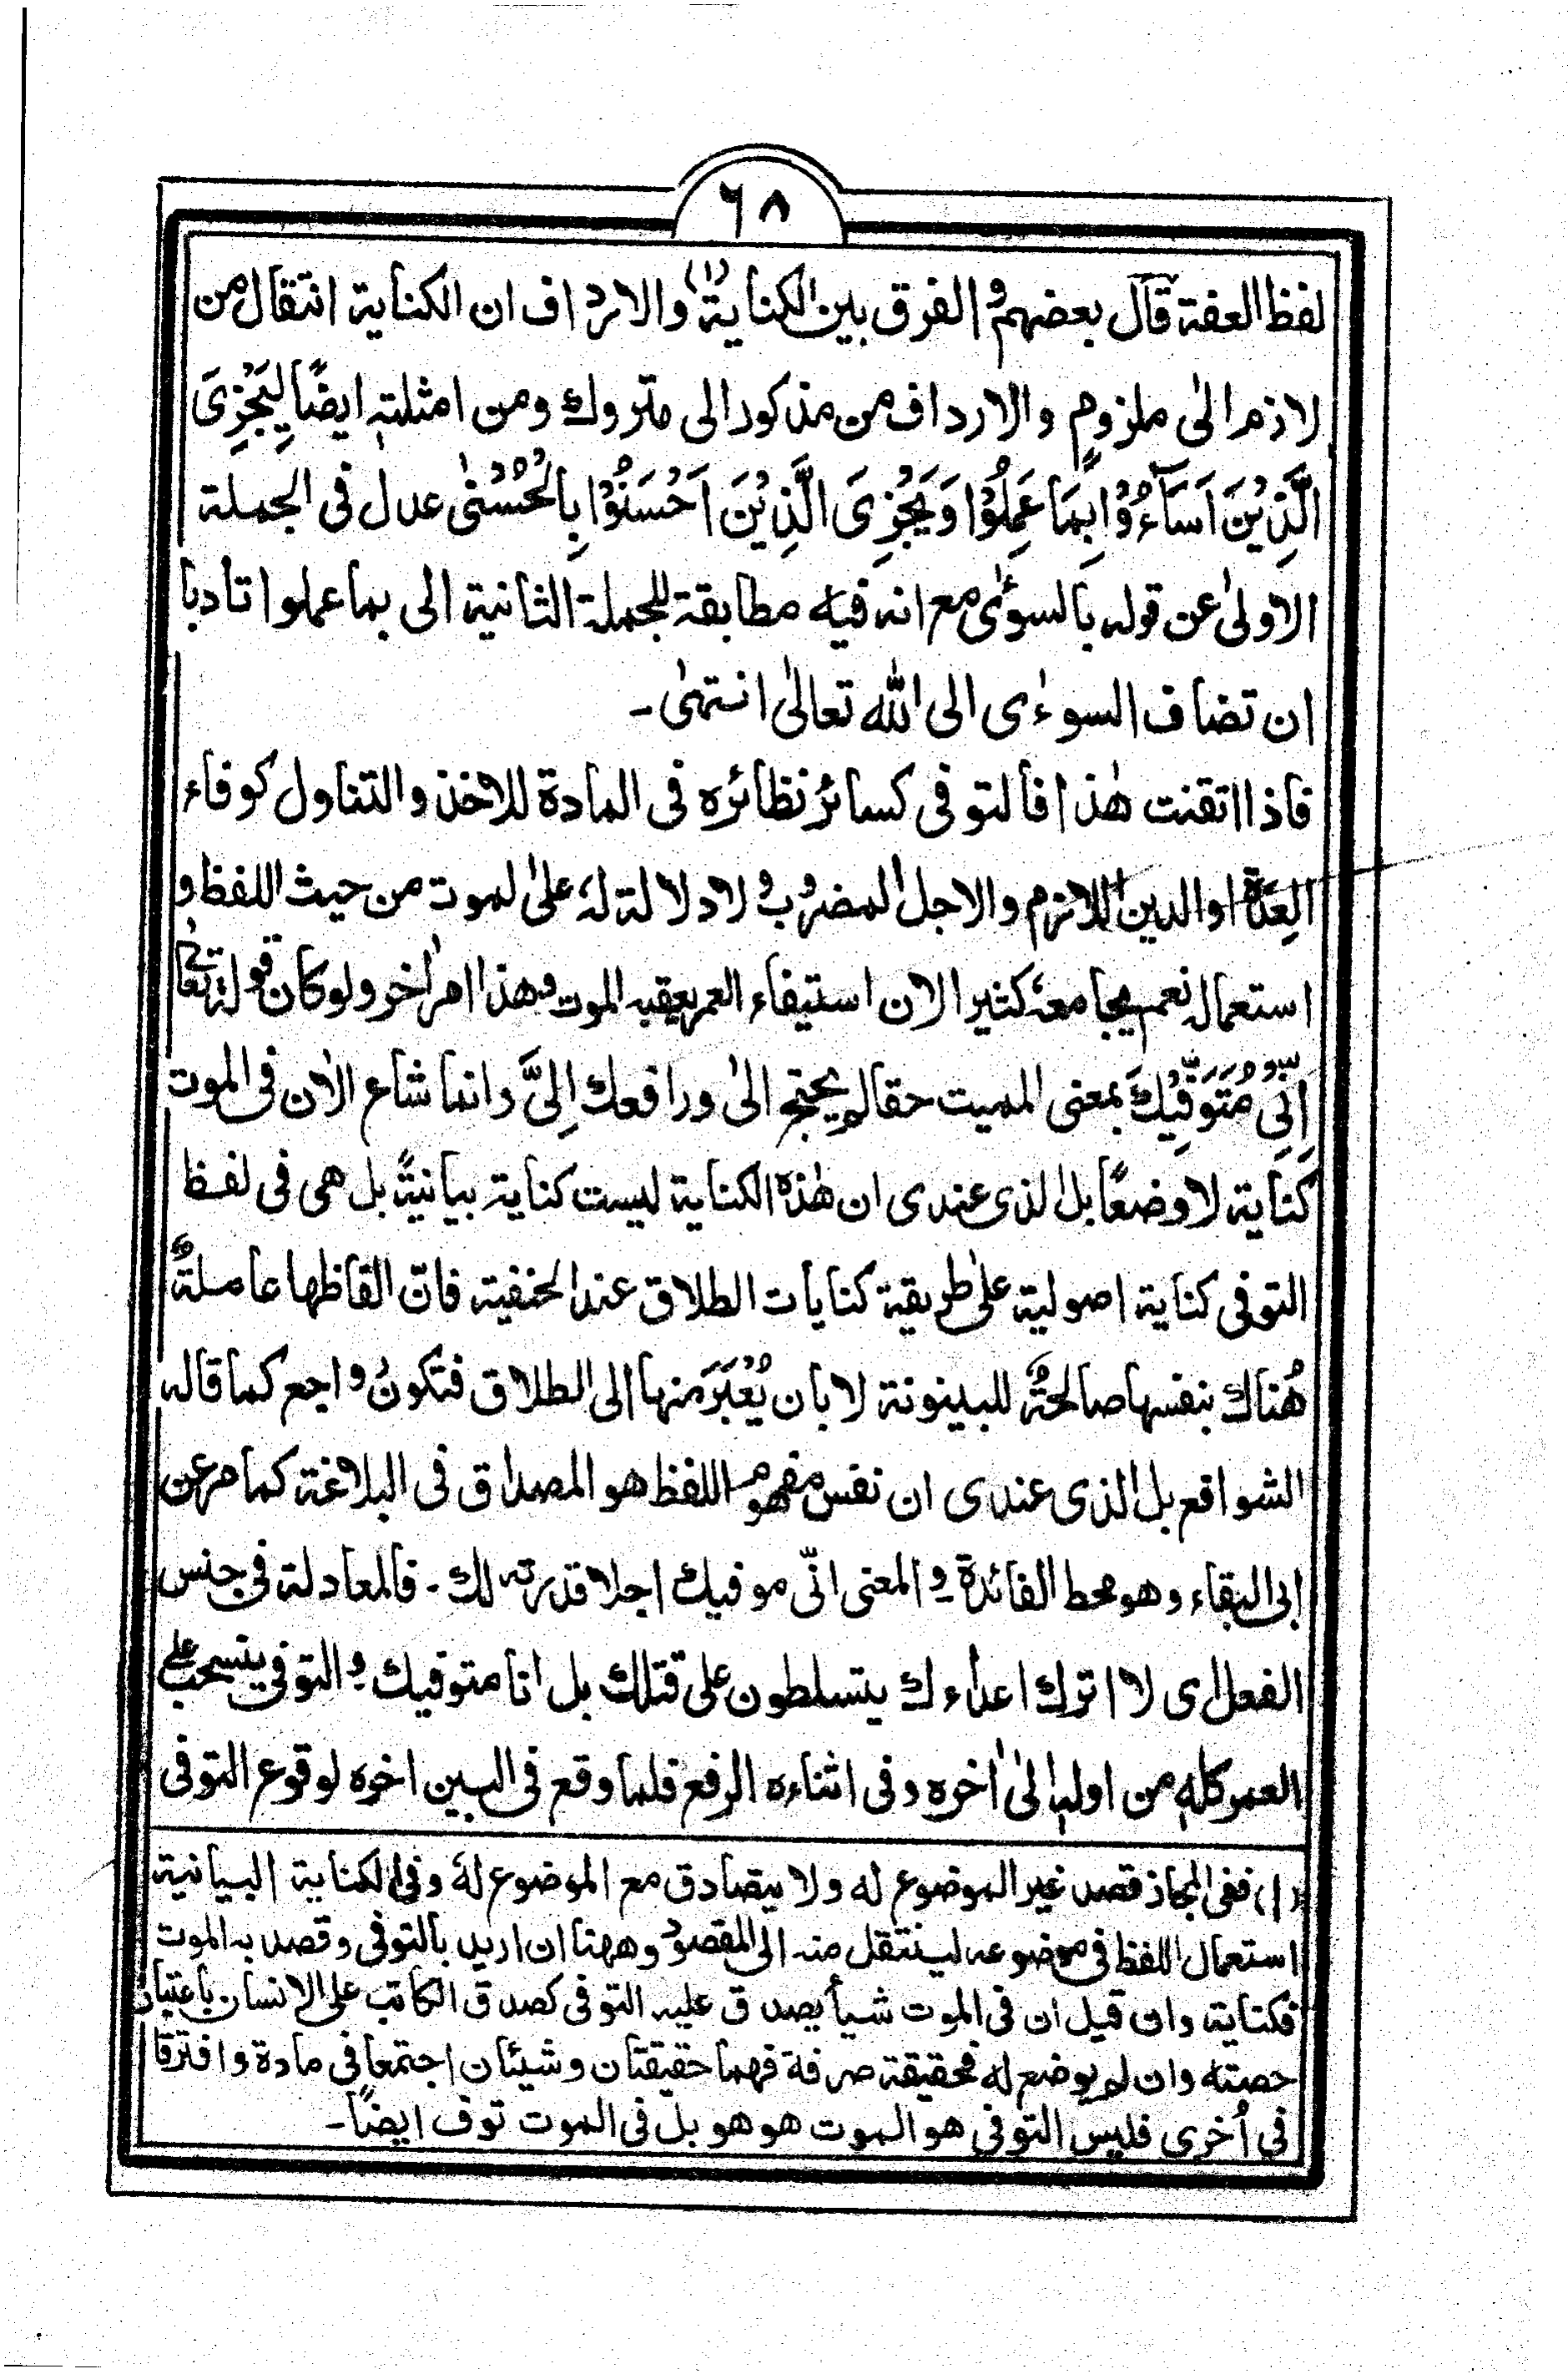 ٦٨
لفظ العفة قال بعضهم و الفرق بين الكناية (١) والارداف ان الكناية انتقال من
لازم الىٰ ملزوم والارداف من مذكور الى متروك ومن امثلته ايضًا لِيَجْزِىَ
الَّذِيْنَ اَسَآءُوْا بِمَا عَمِلُوْا وَيَجْزِىَ الَّذِيْنَ اَحْسَنُوْا بِالْحُسْنىٰ عدل فى الجملة
الاولىٰ عن قوله بالسوئٰى مع انه فيه مطابقة للجملة الثانية الى بما عملوا تادبا
ان تضاف السوءٰى الى الله تعالىٰ انتهىٰ۔
فاذا اتقنت هٰذا فالتوفى كسائر نظائره فى المادة للاخذ والتناول كوفاء
العِدَّة او الدين اللازم والاجل المضروب و لادلالة لهٗ علىٰ لموت من حيث اللفظ و
استعماله نعم يجامعهٗ كثير الان استيفاء العمر يعقبه الموت وهذا امر اٰخر ولو كان قولهٗ تعالىٰ
اِنِّىْ مُتَوَفِّيْكَ بمعنى المميت حقالم يحتج الىٰ ورافعك اِلىَّ وانما شاع الاٰن فى الموت
كناية لاوضعًا بل الذى عندى ان هٰذه الكناية ليست كناية بيانيةً بل هى فى لفظ
التوفى كناية اصولية علىٰ طريقة كنايات الطلاق عند الحنفية فانّ الفاظها عاملةٌ
هُناك بنفسها صالحةٌ للبينونة لابان يُعْبَرَ منها الى الطلاق فتكونُ واجع كما قاله
الشوافع بل الذى عندى ان نفس مفهوم اللفظ هو المصداق فى البلاغة كما مر عن
ابى البقاء وهو محط الفائدة و المعنى انّى موفيك اجلا قدرته لك۔ فالمعادلة فى جنس
الفعل اى لا اترك اعداءك يتسلطون على قتلك بل انا متوفيك و التوفى ينسحب على
العمر كله من اوله الىٰ اٰخره وفى اثناءه الرفع فلما وقع فى البين اخره لوقوع التوفى
(١) ففى المجاز قصد غير الموضوع له ولا يتصادق مع الموضوع لهٗ وفى الكناية البيانية
استعمال اللفظ فى موضوعه لينتقل منه الى المقصود وههنا ان اريد بالتوفى وقصد به الموت
فكناية وان قيل ان فى الموت شيأ يصدق عليه التوفى كصدق الكاتب على الانسان باعتبار
حصته وان لم يوضع له فحقيقة صرفة فهما حقيقتان وشيئان اجتمعا فى مادة وافترقا
فى اُخرى فليس التوفى هو الموت هو هو بل فى الموت توف ايضًا۔